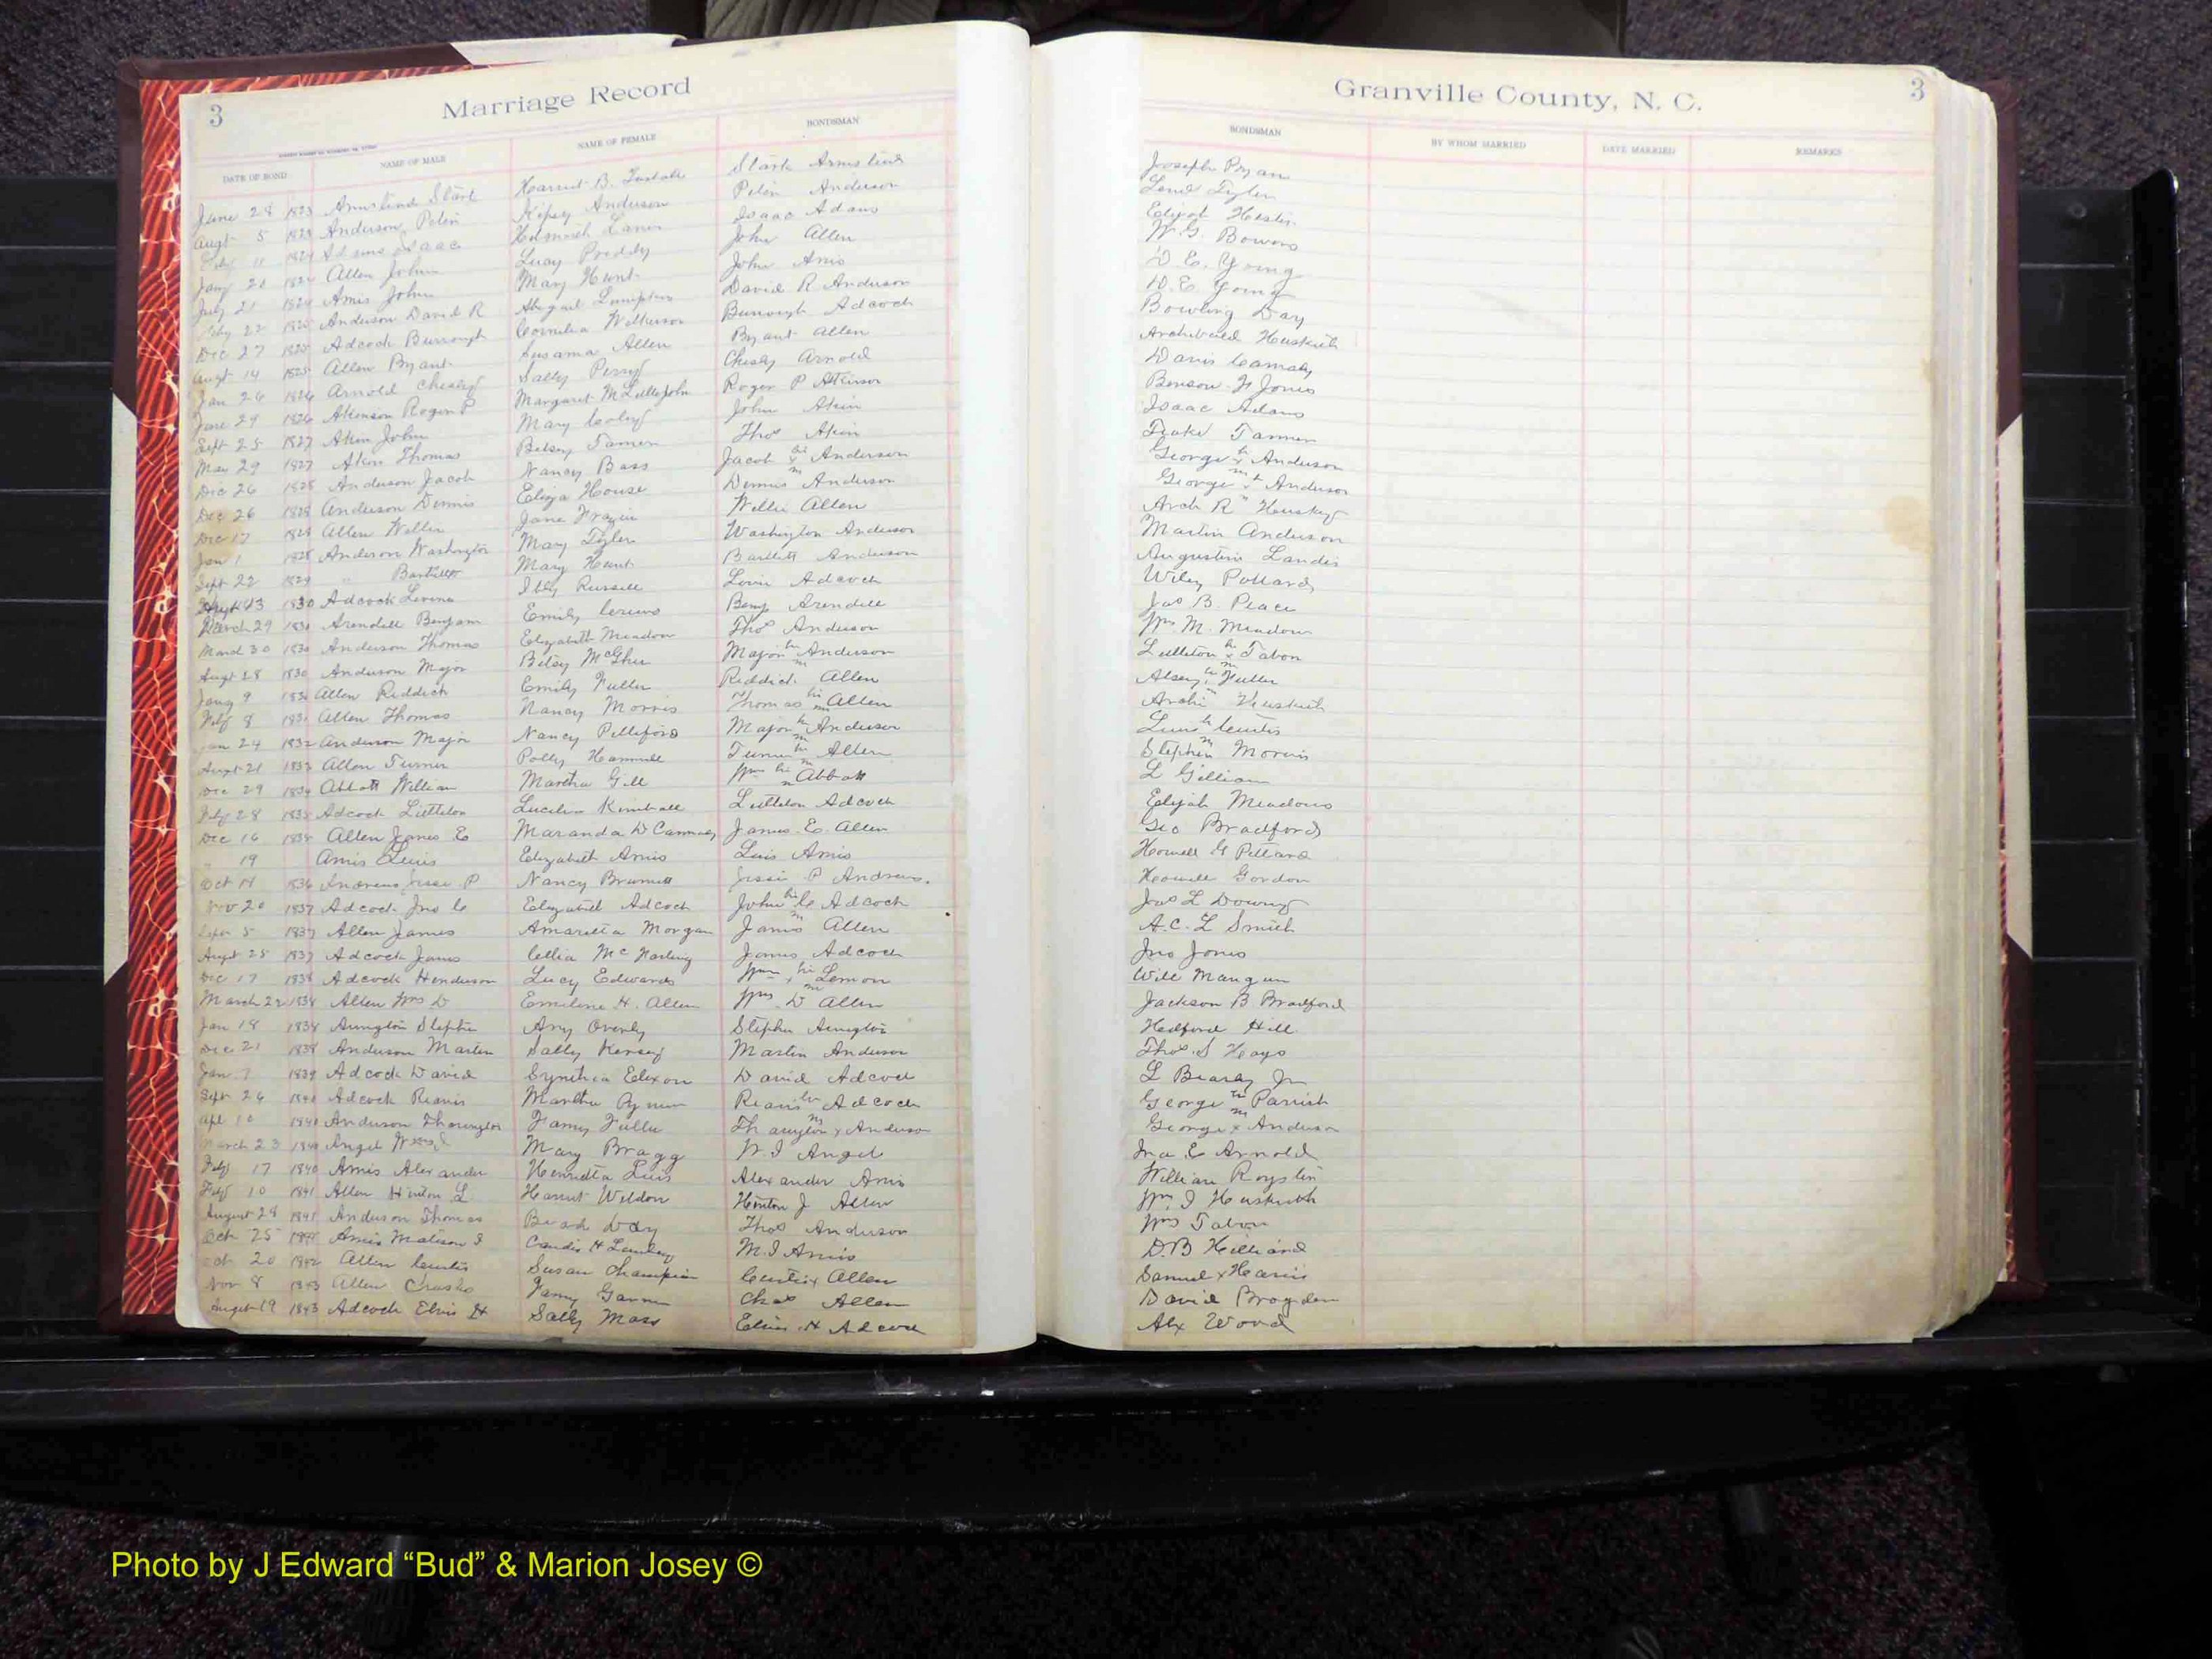 3 Marriage Record
Granville County, N. C. 3
DATE OF BOND NAME OF MALE NAME OF FEMALE BONDSMAN
BONDSMAN BY WHOM MARRIED DATE MARRIED REMARKS
June 28 1823 Harriet B. Joseph Bryan
Augt 5 1823 Anderson Peter Anderson Peter Anderson
11 1824 Isaac Isaac Adams Elijah Hester
Jany 21 Allen John Lucy Preddy John Allen W. G. Bowers
July 21 1824 Amis John Mary Hunt John Amis D. E. Young
22 1825 Anderson David R Abigail Lumpkin David R Anderson D. E. Young
Dec 27 1825 Adcock Burrough Cornelia Wilkerson Burrough Adcock Bowling Day
Augt 14 1825 Allen Bryant Susanna Allen Bryant Allen Archibald
Jan 26 1826 Arnold Chesley Sally Perry Chesley Arnold Davis
June 29 1826 Atkinson Roger P Margaret M Littlejohn Roger P Atkinson Benson F Jones
Sept 25 1827 Akin John Mary Coley John Akin Isaac Adams
May 29 1827 Akin Thomas Betsey Tanner Thos Akin Tanner
Dec 26 1828 Anderson Jacob Nancy Bass Jacob his x m Anderson George his x m Anderson
Dec 26 1828 Anderson Dennis Eliza House Dennis Anderson George x Anderson
Dec 17 1828 Allen Willie Jane Frazier Willie Allen Arch R
Jan 1 1828 Anderson Washington Mary Tyler Washington Anderson Martin Anderson
Sept 22 1829 " Bartlett Mary Hunt Bartlett Anderson Augustin Landis
1830 Adcock Russell Adcock Wiley Pollard
March 29 1830 Arendell Emily Benj Arendell Jas B. Peace
March 30 1830 Anderson Thomas Elizabeth Meadow Thos Anderson Wm M. Meadow
Augt 28 1830 Anderson Major Betsy McGhee Major his m Anderson Littleton his x m Tabon
Jany 9 Allen Reddick Emily Fuller Reddick Allen Fuller
Feby 8 1831 Allen Thomas Nancy Morris Thomas his m Allen
Jan 24 1832 Anderson Major Nancy Pettiford Major his m Anderson
Augt 21 1833 Allen Turner Polly Turner his m Allen Stephen Morris
Dec 29 1834 Abbott William Martha Gill Wm his m Abbott L Gilliam
Feby 28 1835 Adcock Littleton Kimball Littleton Adcock Elijah Meadows
Dec 16 1835 Allen James E Maranda D James E. Allen Geo Bradford
" 19 Amis Lewis Elizabeth Amis Lewis Amis Howell G Pittard
Oct 1836 Andrews Jesse P Nancy Brummett Jesse P Andrews. Howell Gordon
Nov 20 1837 Adcock Jno C Elizabeth Adcock John his C m Adcock Jas L Downey
5 1837 Allen James Amaretta Morgan James Allen A. C. L Smith
Augt 25 1837 Adcock James Celia James Adcock Jno Jones
Dec 17 1838 Adcock Henderson Lucy Edwards Wm his x m Lemon Will Mangum
March 22 1838 Allen Wm D Emeline H. Allen Wm D Allen Jackson B Bradford
Jan 18 1838 Arrington Stephen Amy Overby Stephen Arrington Medford Hill
Dec 21 1838 Anderson Martin Sally Kersey Martin Anderson Thos. S Hays
Jan 7 1839 Adcock David Synthia Elixon David Adcock L Bearley Jr
Sept 26 1840 Adcock Reavis Martha Reavis his m Adcock George his m Parrish
Apl 10 1840 Anderson Fanny Fuller x Anderson George x Anderson
March 23 1840 Angel Mary Bragg W. I Angel E Arnold
Feby 17 1840 Amis Alexander Henrietta Lewis Alexander Amis William Royster
Feby 10 1841 Allen Hinton Harriet Weldon Hinton J Allen Wm. I
August 28 1841 Anderson Thomas Day Thos Anderson Wm Tabon
Oct 25 Amis Candis H M. I Amis D. B Hilliard
20 1842 Allen Curtis Susan Champion Curtis x Allen Samuel x Harris
Nov 8 1843 Allen Fanny Chas Allen David Brogden
August 19 1843 Adcock Elvis H Sally Moss Elvis H Adcock Alx Wood
Photo by J Edward “Bud” & Marion Josey ©